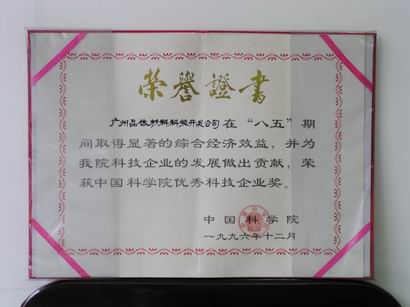 荣誉證書
广州晶体材料科技开发公司在“八五”期
间取得显著的综合经济效益，并为
我院科技企业的发展做出贡献，荣
获中国科学院优秀科技企业奖。
中国科学院
一九九六年十二月